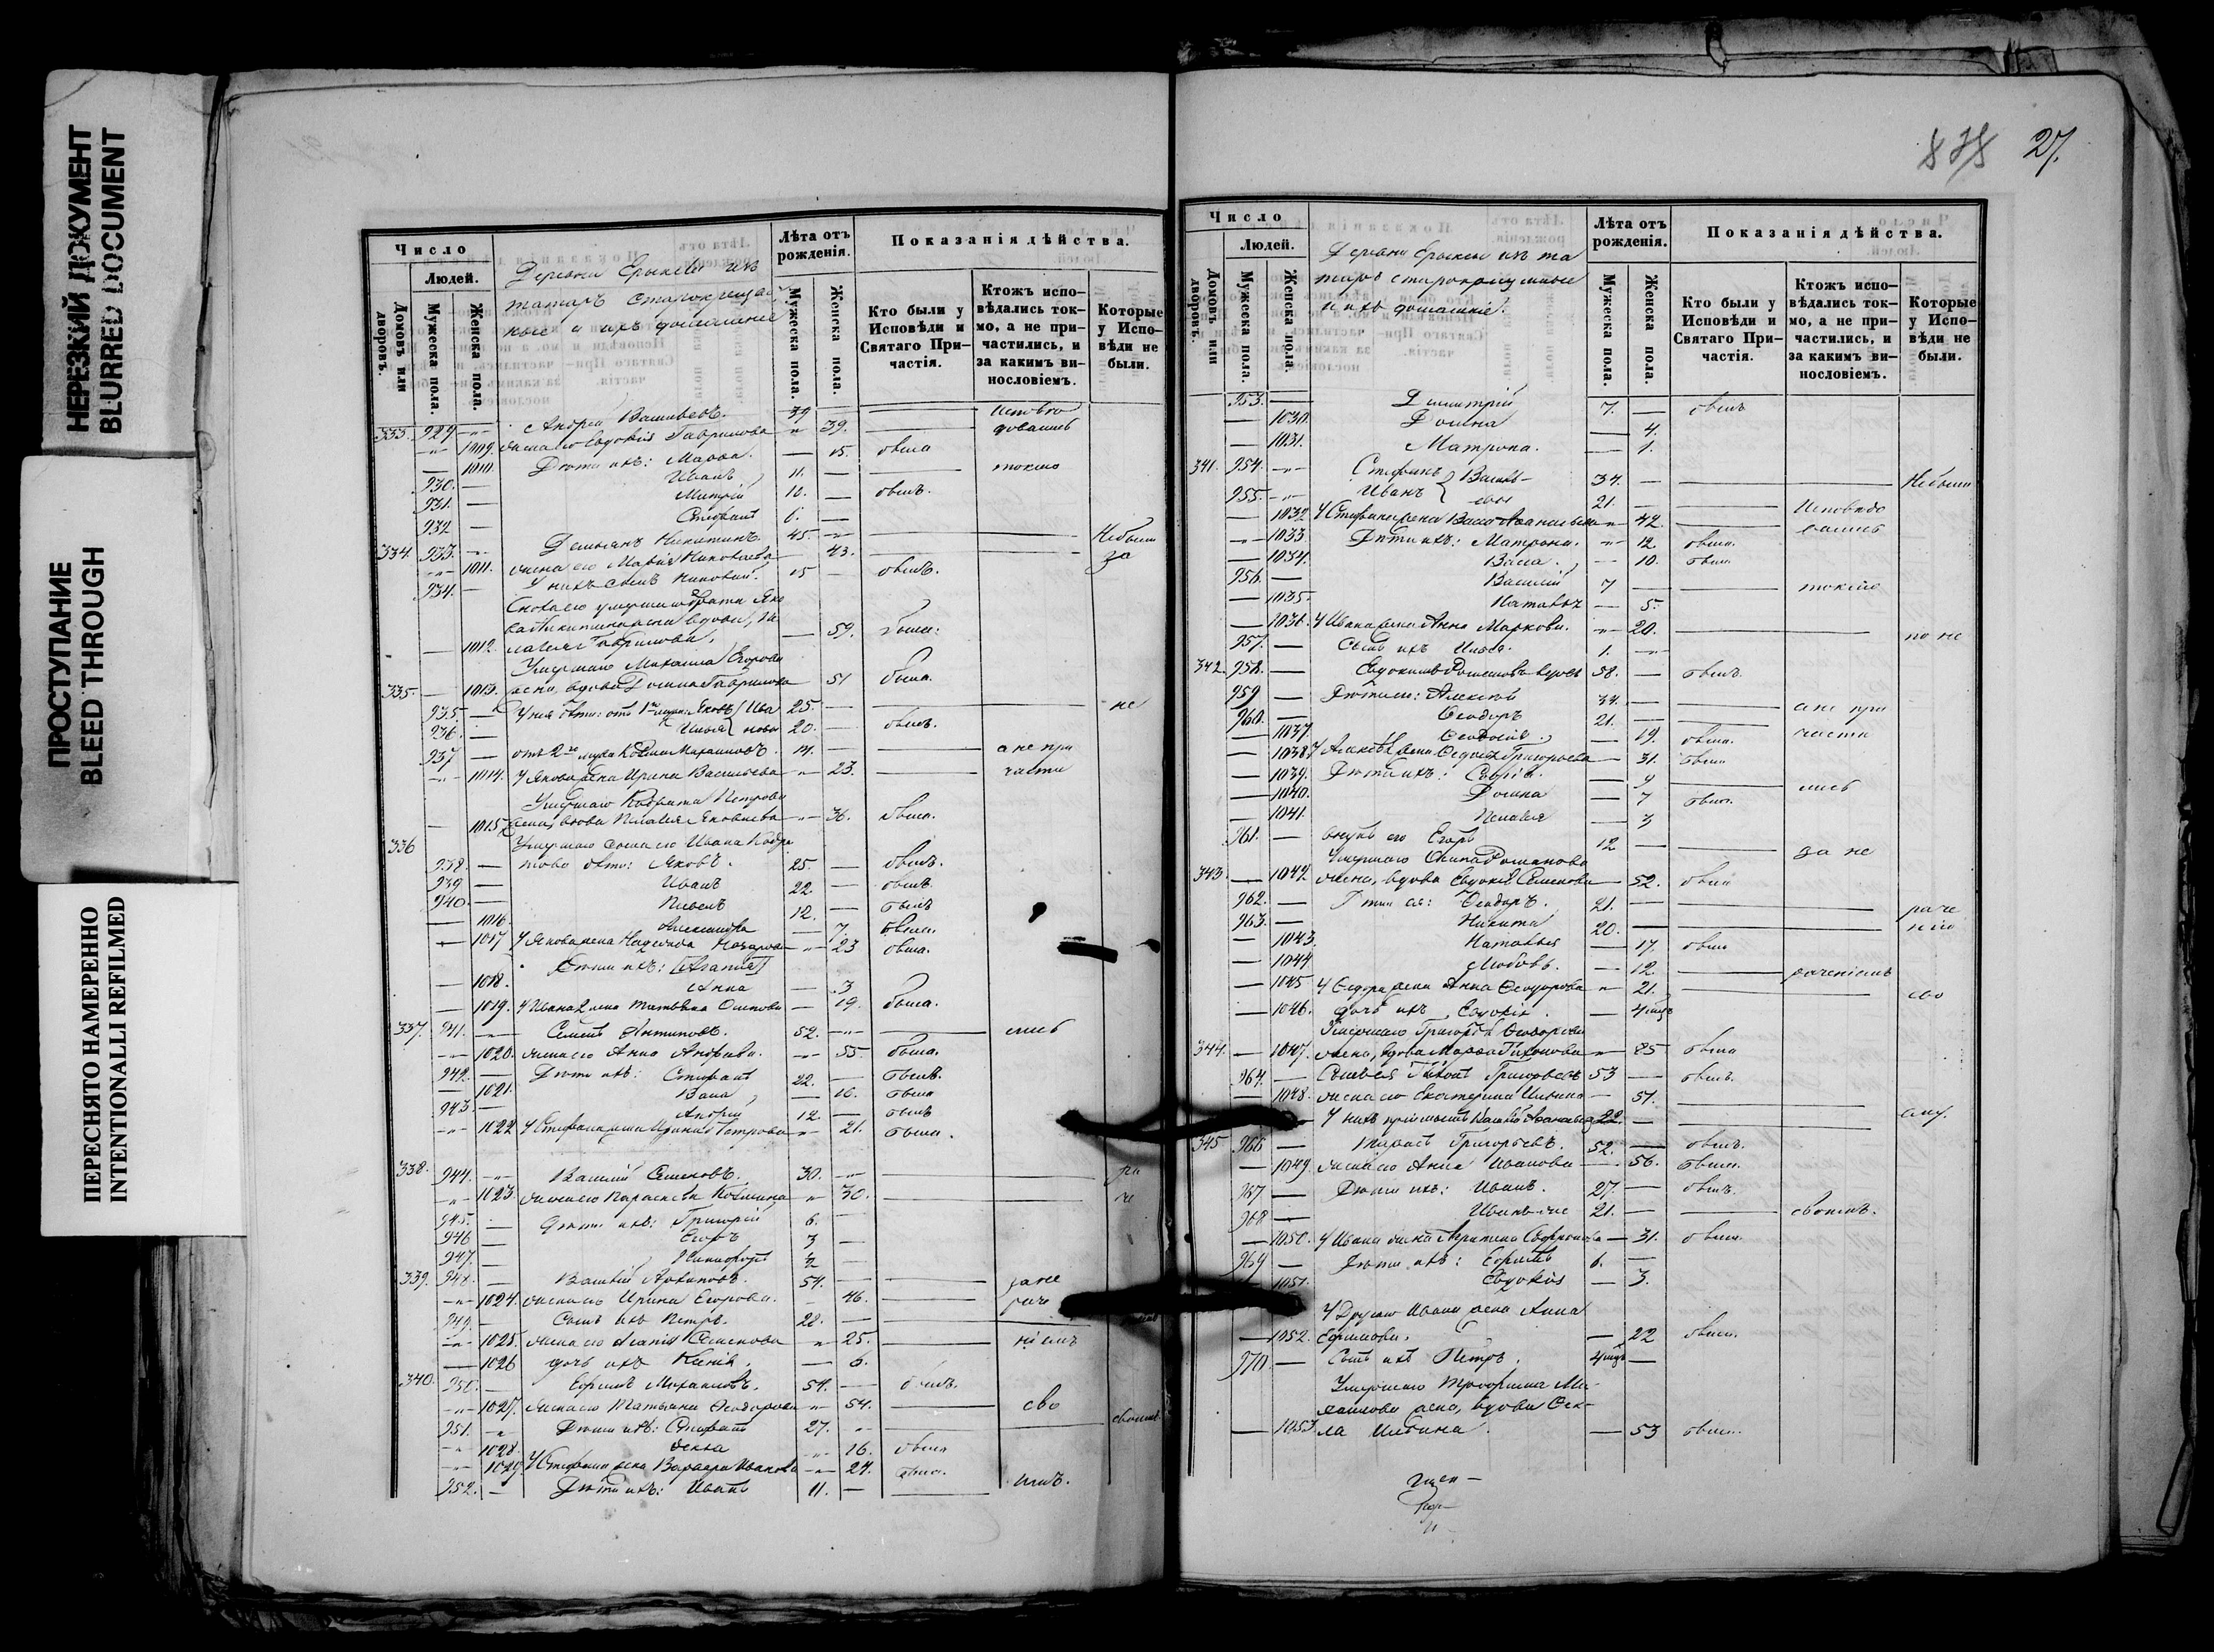 НЕРЕЗКИЙ ДОКУМЕНТ
BLURRED DOCUMENT
ПРОСТУПАНИЕ
BLEED THROUGH
ПЕРЕСНЯТО НАМЕРЕННО
INTENTIONALLI REFILMED
Число
Людей.
Домовъ или дворовъ.
Мужеска пола.
Женска пола.
Деревни Ерыксы изъ
татаръ старокрещен
ные и ихъ домашніе
Лѣта отъ рожденія.
Мужеска пола.
Женска пола.
Показанія дѣйства.
Кто были у Исповѣди и Святаго Причастія.
Ктожъ исповѣдались токмо, а не причастились, и за какимъ винословіемъ.
Которые у Исповѣди не были.
333. 929 Андрей Васильевъ. 39 исповѣ
1009. жена его Евдокія Гаврилова 39. довались
1010. Дѣти ихъ: Марѳа. 15. была
930. Иванъ 11. токмо
931. Митрій 10. былъ.
932 Стефанъ 6.
334. 933. Демьянъ Никитинъ 45. Небыли
1011. жена его Марія Николаева 43. за
934. У нихъ сынъ Николай. 15 былъ.
Сноха его умершаго брата Яко
ва Никитина жена вдова, Пе
1012. лагея Гаврилова. 59. была.
Умершаго Михаила Егорова
335 1013. жена, вдова Домна Гаврилова 51 была.
935. У нея дѣти: отъ 1го мужа: Яковъ Ива 25. не
936. Илья новы 20. былъ.
937 отъ 2го мужа Козма Михаиловъ. 14. а не при
1014. У Якова жена Ирина Васильева 23. части
Умершаго Кодрата Петрова
1015 жена, вдова Пелагея Яковлева 36. была.
336 Умершаго сына его Ивана Кодра
938. това дѣти: Яковъ. 25. былъ.
939 Иванъ 22. былъ
940 Павелъ 12. былъ
1016. Александра 7. была.
1017 У Якова жена Надежда Назарова 23 была.
Дѣти ихъ: [Агапія]
1018. Анна 3
1019. У Ивана жена Татьяна Осипова 19. была.
337. 941. Семенъ Антиповъ. 52. лись
1020. жена его Анна Андреева. 55. была.
942. Дѣти ихъ: Стефанъ 22. былъ.
1021. Васа 16. была
943. Андрей 12. былъ
1022 У Стефана жена Ирина Петрова 21. была.
338. 944. Василій Семеновъ. 30. ра
1023. жена его Параскева Козмина 30. че
945. Дѣти ихъ: Григорій 6.
946 Егоръ 3
947. Никифоръ 2
339. 948. Василій Архиповъ. 54. за не
1024. жена его Ирина Егорова. 46. раче
949. Сынъ ихъ Петръ. 28.
1025. жена его Агапія Семенова 25. ніемъ
1026 дочь ихъ Ксенія. 6.
340. 950. Ефремъ Михаиловъ. 54. былъ.
1027. жена его Татьяна Ѳеодорова 54. сво
951. Дѣти ихъ: Стефанъ 27. своимъ
1028. Ѳекла 16. была
1029. У Стефана жена Варвара Иванова 24. была.
952. Дѣти ихъ: Иванъ 11. имъ.
878 27.
Число
Людей.
Домовъ или дворовъ.
Мужеска пола.
Женска пола.
Деревни Ерыксы изъ та
таръ старокрещеные
и ихъ домашніе.
Лѣта отъ рожденія.
Мужеска пола.
Женска пола.
Показанія дѣйства.
Кто были у Исповѣди и Святаго Причастія.
Ктожъ исповѣдались токмо, а не причастились, и за какимъ винословіемъ.
Которые у Исповѣди не были.
953. Димитрій 7. былъ
1030. Домна 4.
1031. Матрона. 1.
341. 954. Стефанъ Василь- 34. Небыли
955. Иванъ евы 21. Исповѣдо
1032 У Стефана жена Васса Аѳанасьева 42. вались
1033. Дѣти ихъ: Матрона. 12. была.
1034. Васса. 10. была
956. Василій 7 токмо
1035. Наталья 5.
1036. У Ивана жена Анна Маркова. 20.
957. Сынъ ихъ Илья. 1. по не
342. 958. Евдокимъ Романовъ вдовъ 58. былъ.
959 Дѣти его: Алексѣй 34. а не при
960. Ѳеодоръ 21. части
1037. Ѳеодосія. 19. была.
1038 У Алексѣя жена Ѳедосья Григорьева 31. была
1039. Дѣти ихъ: Софія. 9 лись
1040. Домна 7 была.
1041. Пелагея 3
961. внукъ его Егоръ 12 за не
Умершаго Осипа Романова
343. 1042 жена, вдова Евдокія Семенова 52. была
962. Дѣти ея: Ѳеодоръ. 21. раче
963. Никита 20. ніе
1043. Наталья 17. была
1044 Любовь. 12. раченіемъ
1045 У Ѳедора жена Анна Ѳеодорова 21. сво
1046. дочь ихъ Евдокія. 4 мѣс
Умершаго Григорія Ѳеодорова
344. 1047. жена, вдова Марѳа Тихонова 85 была
964. Сынъ ея Тихонъ Григорьевъ 53 былъ.
1048. жена его Екатерина Ильина 51.
22. ему.
345 966 Тарасъ Григорьевъ. 52. былъ.
1049. жена его Анна Иванова 56. была.
967 Дѣти ихъ: Иванъ. 27. былъ.
968 Иванъ-же 21. своимъ.
1050. У Ивана жена Агрипена Софронова 31. была.
969 Дѣти ихъ: Ефремъ 6.
1051. Евдокія 3.
У Другаго Ивана жена Анна
1052. Ефимова. 22 была.
970 Сынъ ихъ Петръ. 4 мѣс
Умершаго Трофима Ми-
хаилова жена, вдова Ѳек-
1053 ла Ильина. 53 была.